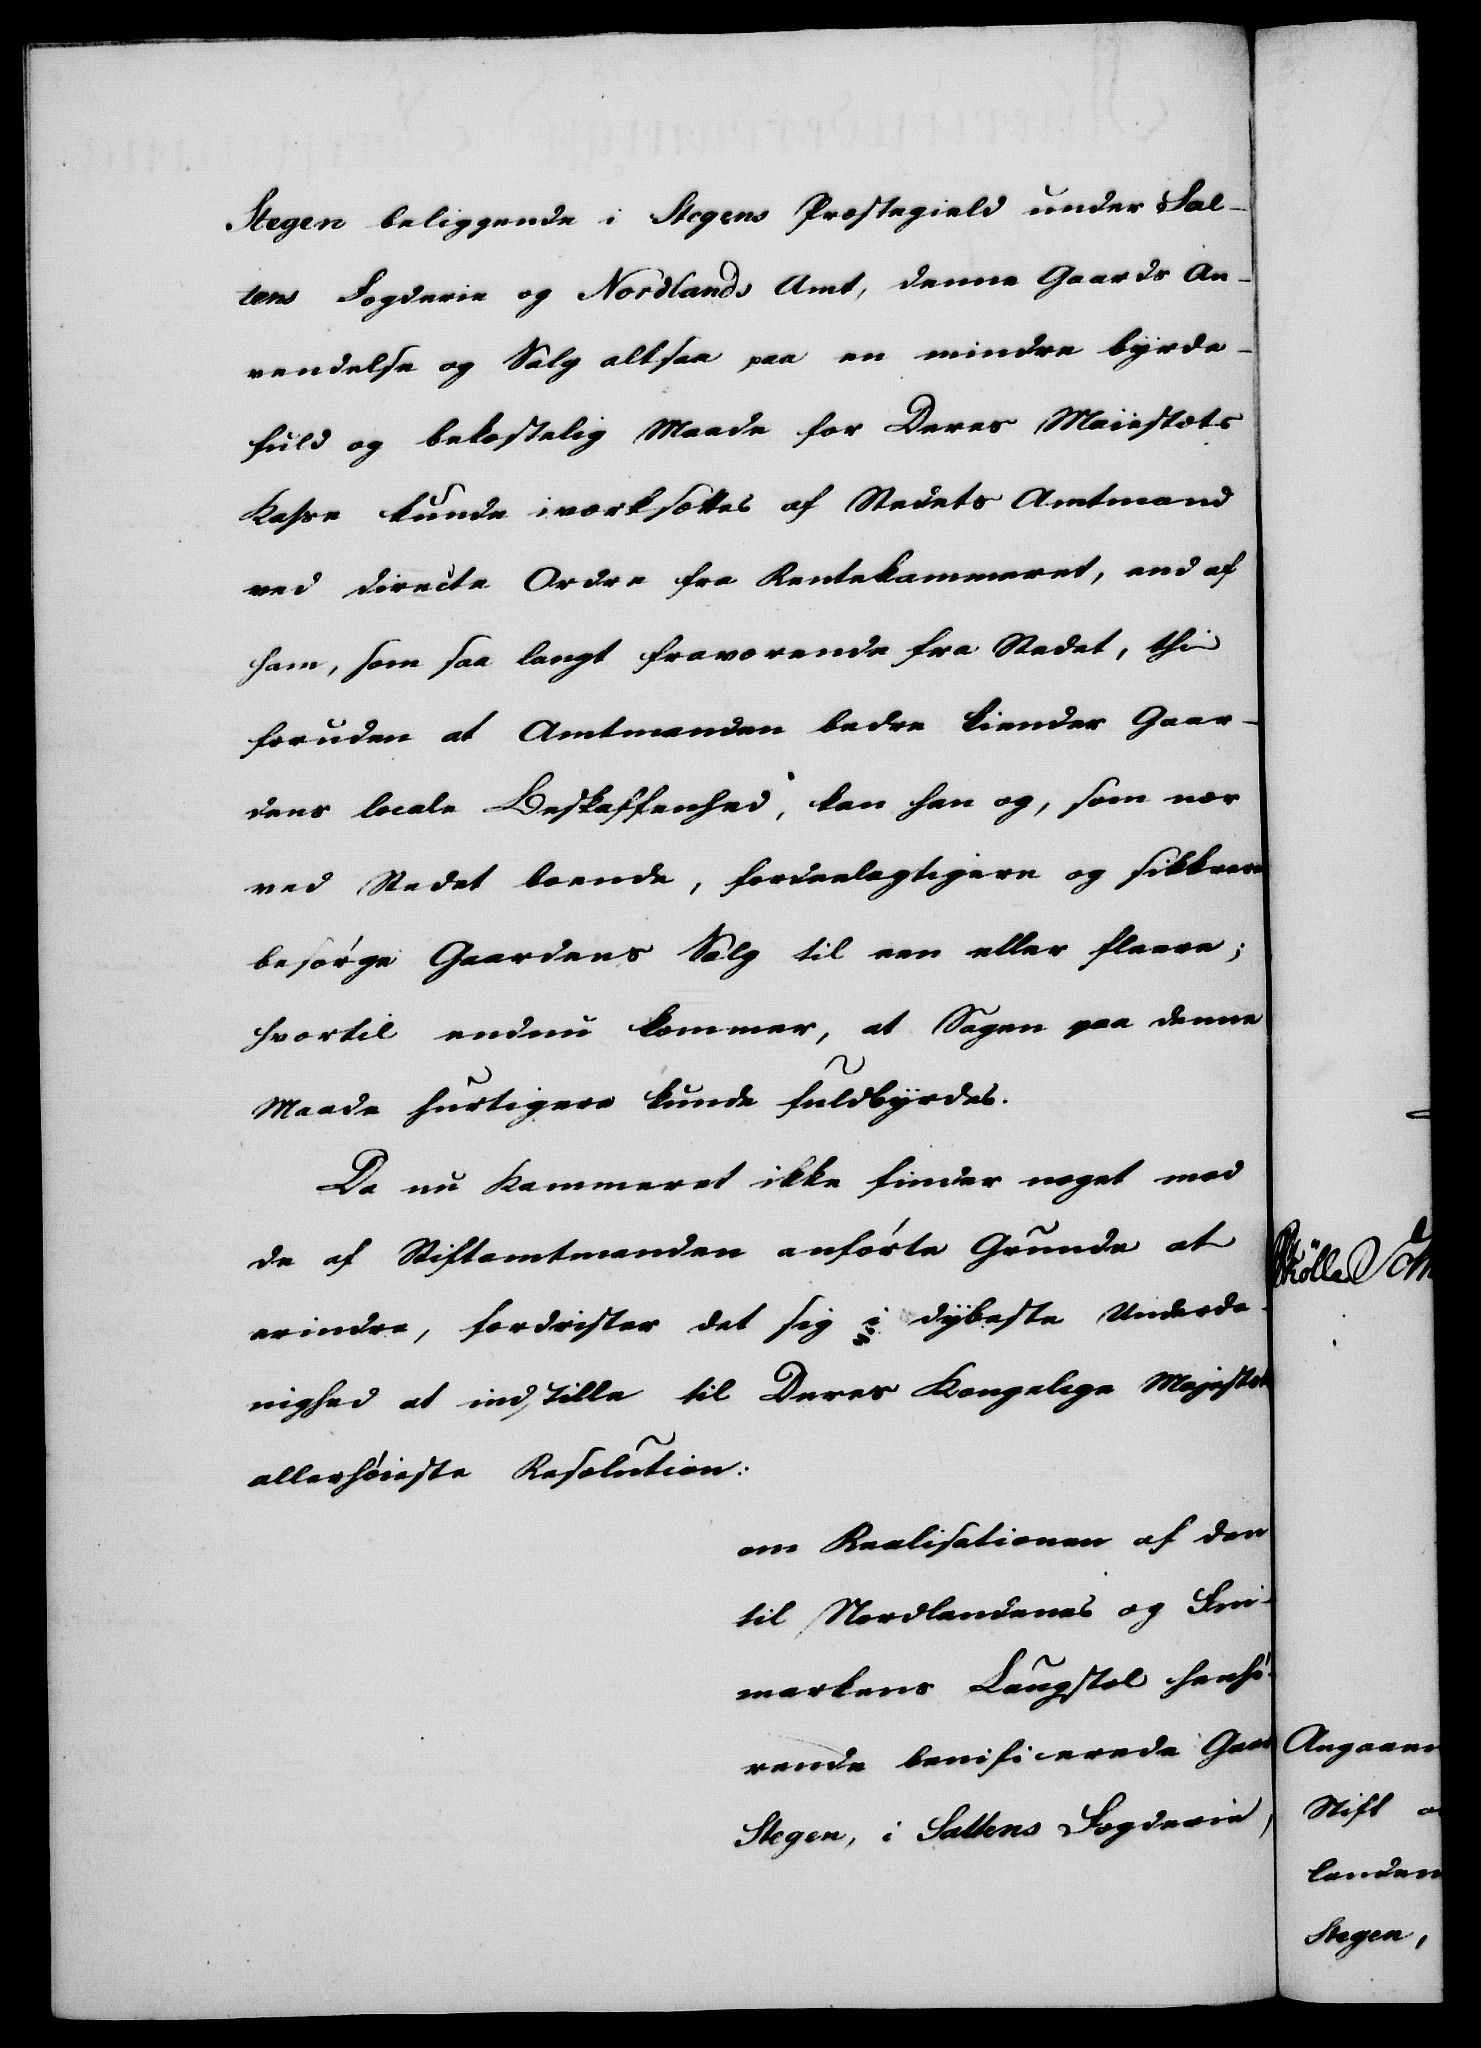 Stegen beliggende i Stegens Præstegield under Sal-
tens Fogderie og Nordlands Amt, denne Gaards An-
vendelse og Salg altsaa paa en mindre byrde-
fuld og bekostelig Maade for Deres Maiestæts
Kasse kunde iværksættes af Stedets Amtmand
ved directe Ordre fra Rentekammeret, end af
ham, som saa langt fraværende fra Stedet, thi
foruden at Amtmanden bedre kiender Gaar-
dens locale Beskaffenhed, kan han og, som nær
ved Stedet boende, fordeelagtigere og sikkrere
besørge Gaardens Salg til een eller fleere;
hvortil endnu kommer, at Sagen paa denne
Maade hurtigere kunde fuldbyrdes.
Da nu Kammeret ikke finder noget mod
de af Stiftamtmanden anførte Grunde at
erindre, fordrister det sig i dybeste Underda-
nighed at indstille til Deres Kongelige Majestæts
allerhøieste Resolution:
om Realisationen af den
til Nordlandenes og Fin-
markens Laugstol henhø-
rende benificerede Gaard
Stegen, i Saltens Fogderie,
Angaaen
Stift o
landen
Stegen,